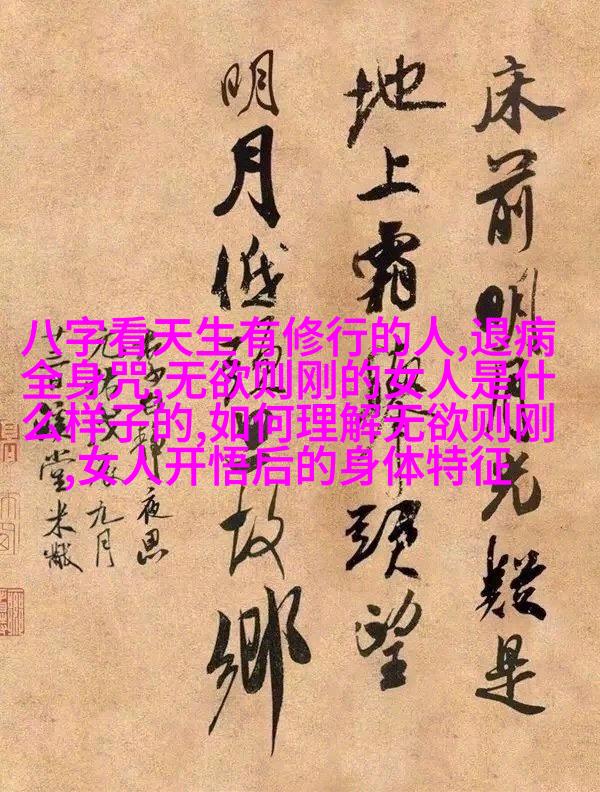 床前明月光疑是
地上霜舉頭望
明月低頭思故鄉
李白靜夜思
元祐戊辰九月
堂米黻
八字看天生有修行的人,退病
全身咒,无欲则刚的女人是什
么样子的,如何理解无欲则刚
,女人开悟后的身体特征